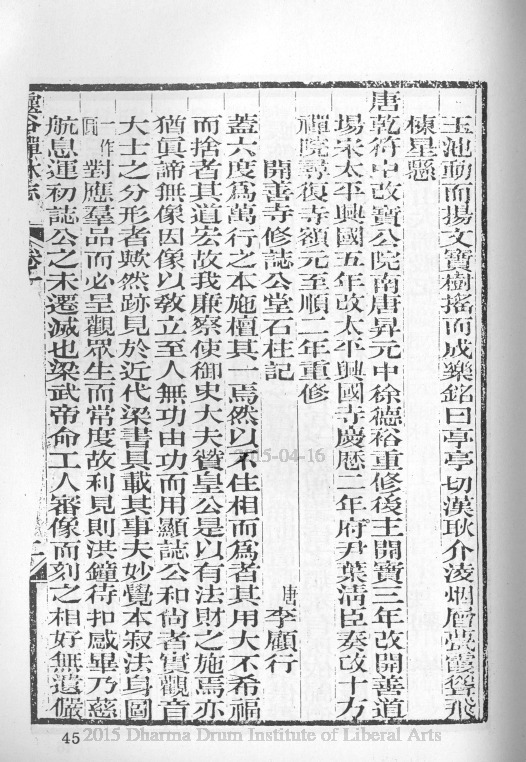 玉池動而揚文寶樹搖而成樂銘曰亭亭切漢耿介淩烟層甍霞聳飛
棟星懸
唐乾符中改寶公院南唐昇元中徐德裕重修後主開寶三年改開善道
場宋太平興國五年改太平興國寺慶歷二年府尹葉清臣奏改十方
禪院尋復寺額元至順二年重修
開善寺修誌公堂石柱記
唐 李顧行
蓋六度為萬行之本施檀其一焉然以不住相而為者其用大不希福
而捨者其道宏故我廉察使御史大夫贊皇公是以有法財之施焉亦
猶眞諦無像因像以教立至人無功由功而用顯誌公和尚者實觀音
大士之分形者歟然跡見於近代梁書具載其事夫妙覺本寂法身圓
一作圓對應羣品而必呈觀眾生而常度故利見則洪鐘待扣感畢乃慈
航息運初誌公之未遷滅也梁武帝命工人審像而刻之相好無遺儼
靈谷禪林志 卷十
2015-04-16
45
2015 Dharma Drum Institute of Liberal Arts